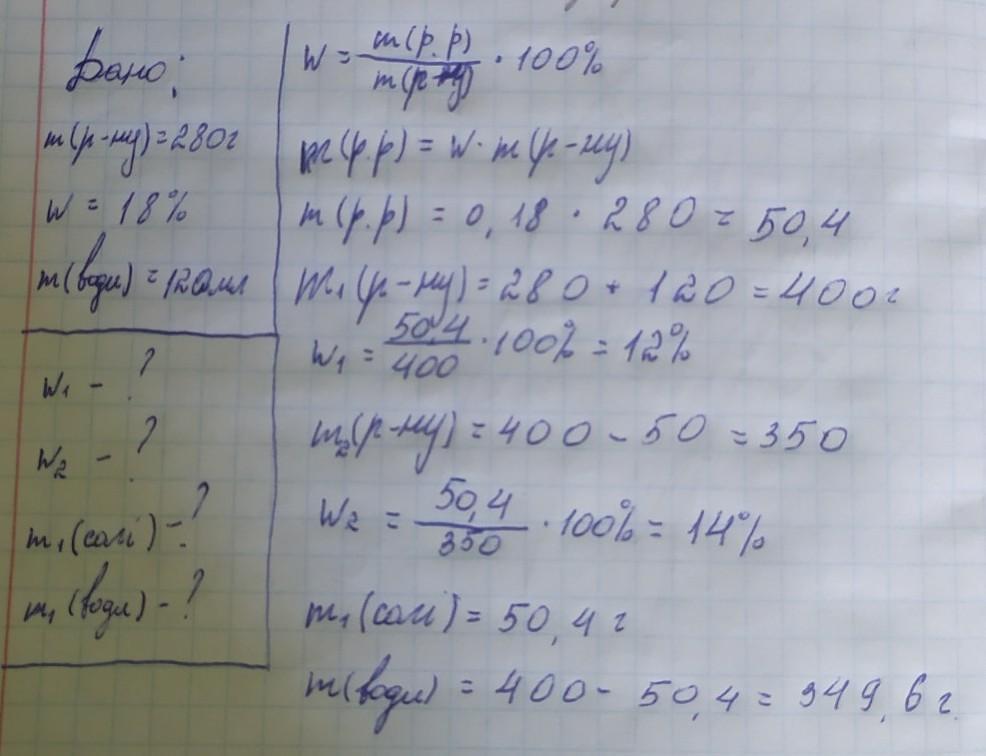 Дано:
m(р-ну)=280г
W = 18%
m(води)=120мл
W₁ - ?
W₂ - ?
m₁(солі) - ?
m₁(води) - ?
W = m(р.р) / m(р-ну) · 100%
m(р.р) = W · m(р-ну)
m(р.р) = 0,18 · 280 = 50,4
m₁(р-ну) = 280 + 120 = 400г
W₁ = 50,4 / 400 · 100% = 12%
m₂(р-ну) = 400 - 50 = 350
W₂ = 50,4 / 350 · 100% = 14%
m₁(солі) = 50,4 г
m(води) = 400 - 50,4 = 349,6 г.